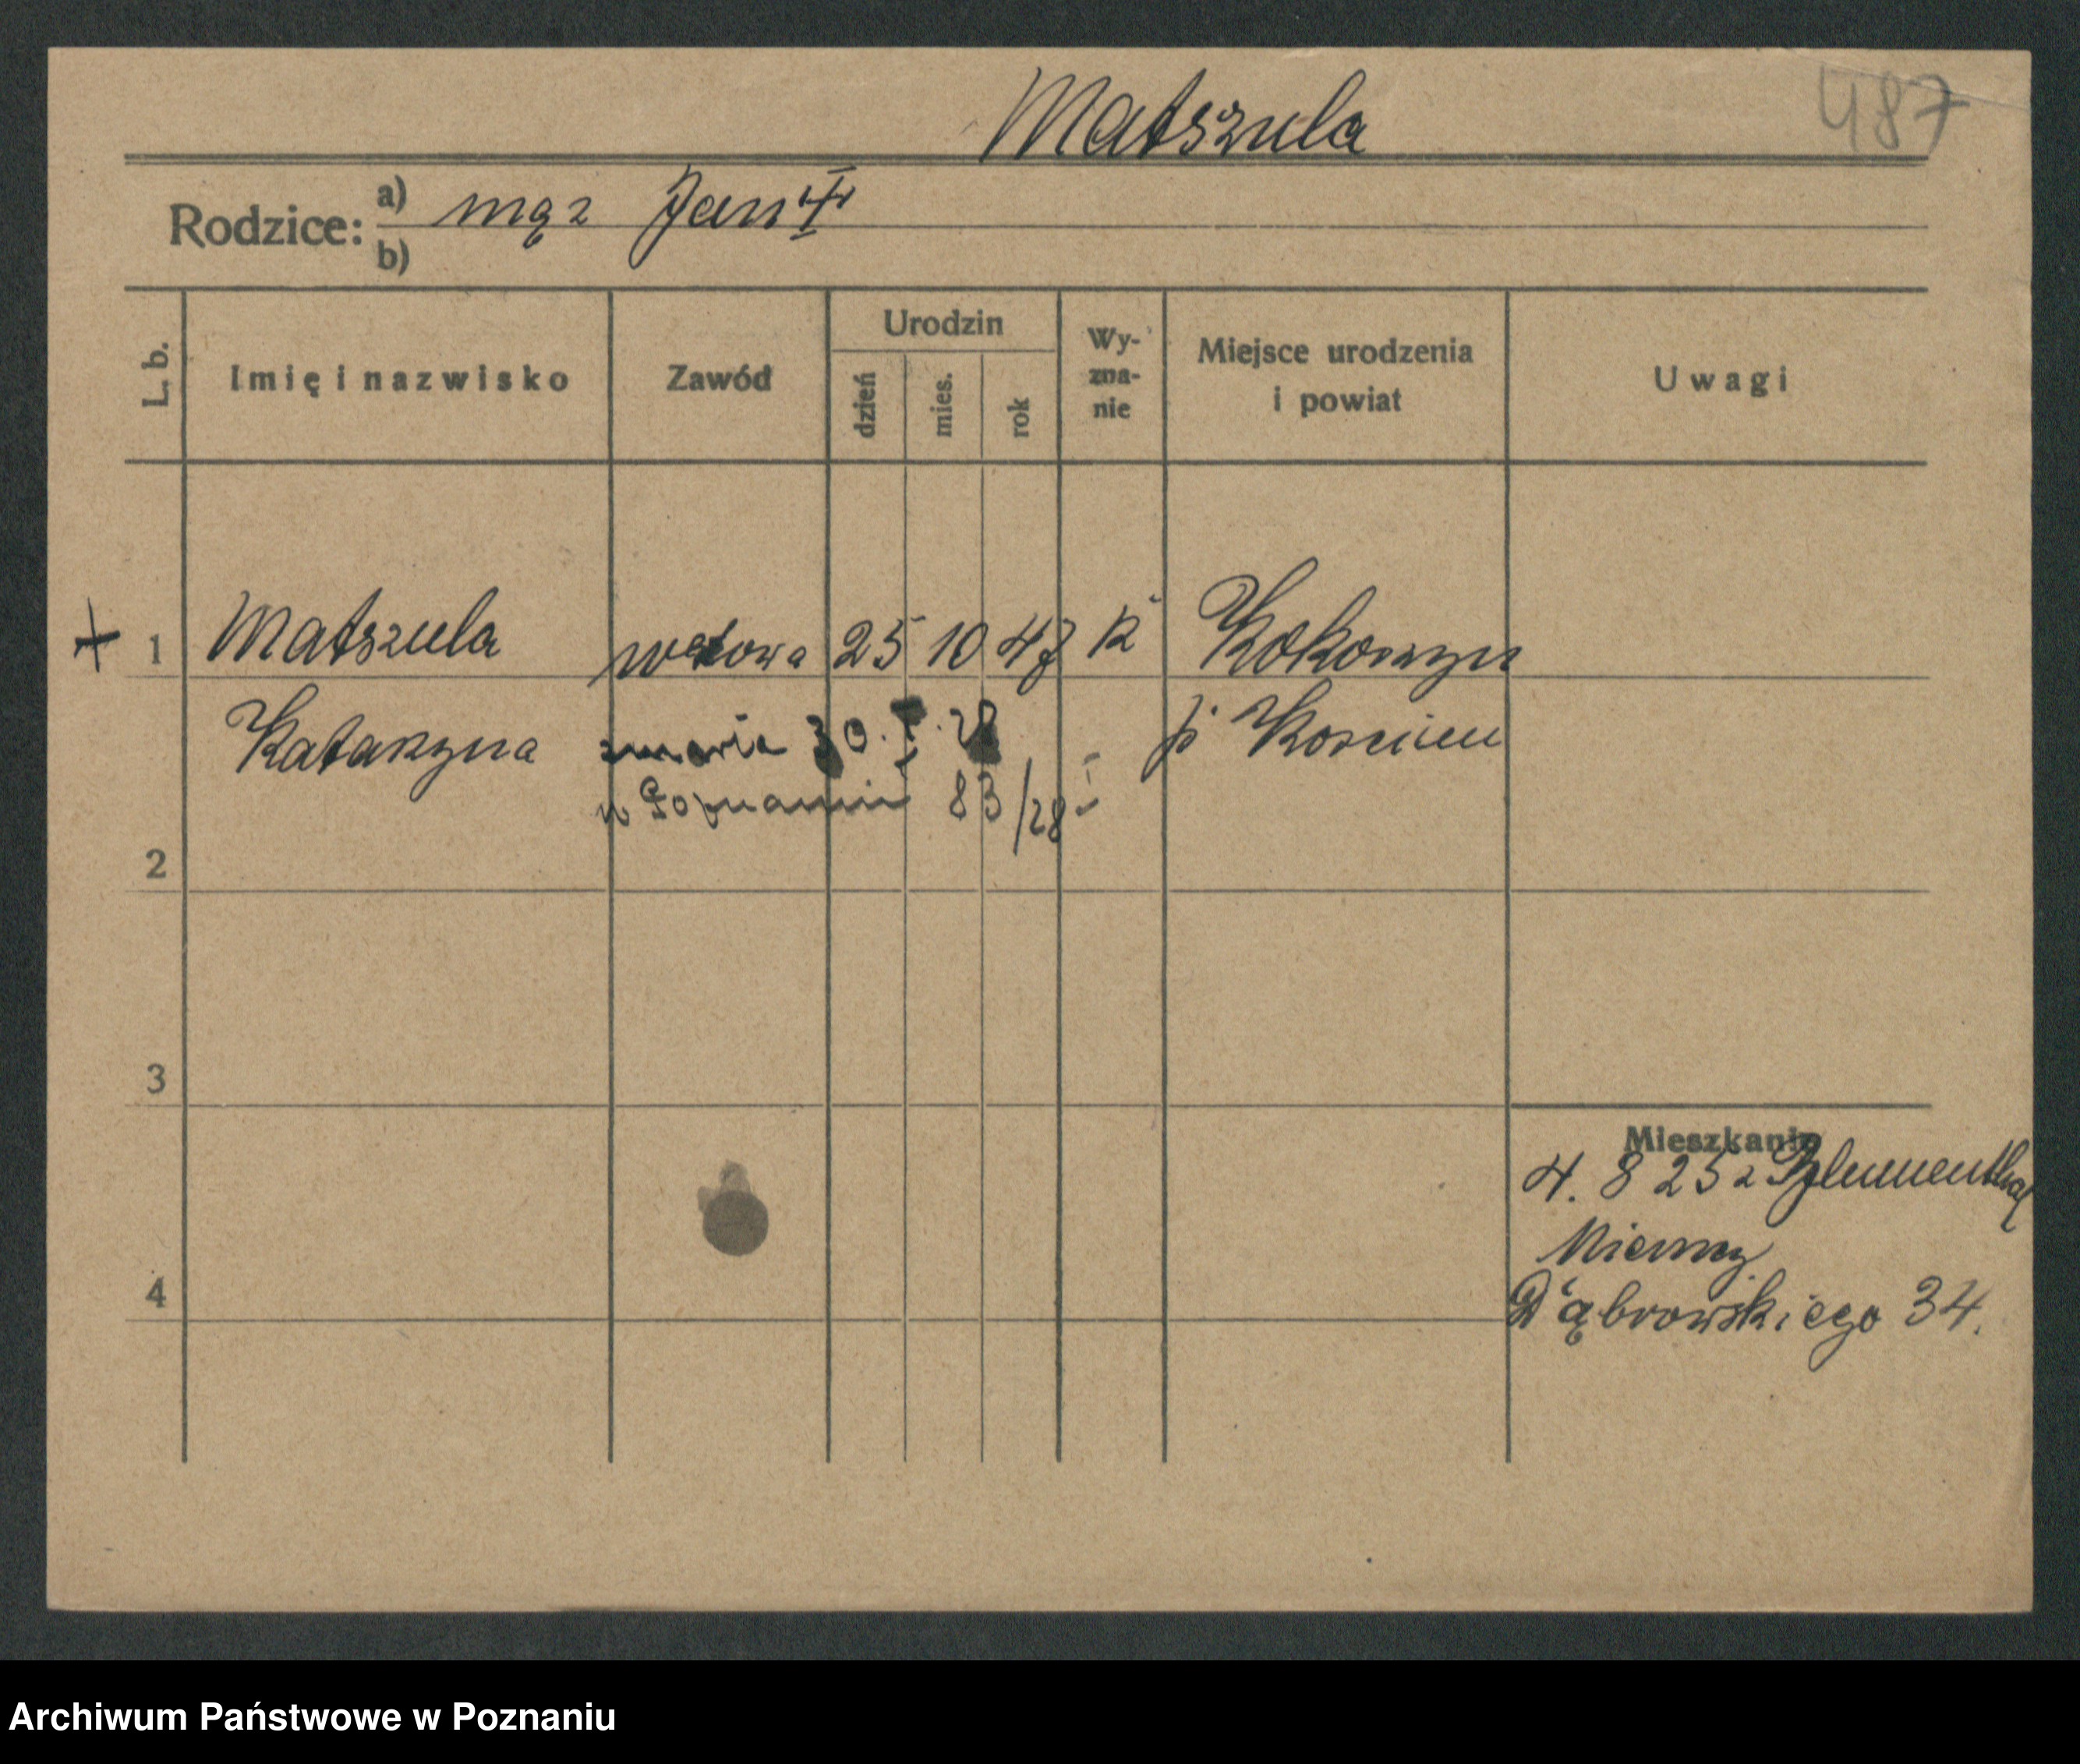 Matszula
487
Rodzice: a) mąż Jan
b)
L. b. Imię i nazwisko Zawód Urodzin dzień mies. rok Wy-zna-nie Miejsce urodzenia i powiat Uwagi
+ 1 Matszula wdowa 25 10 47 k Kokorzyn
Katarzyna zmarła 30. I. 28 p. Koscian
w Poznaniu 83/28 I
2
3
Mieszkanie
4. 8 25 z Blumenthal
Niemcy
4
Dąbrowskiego 34.
Archiwum Państwowe w Poznaniu